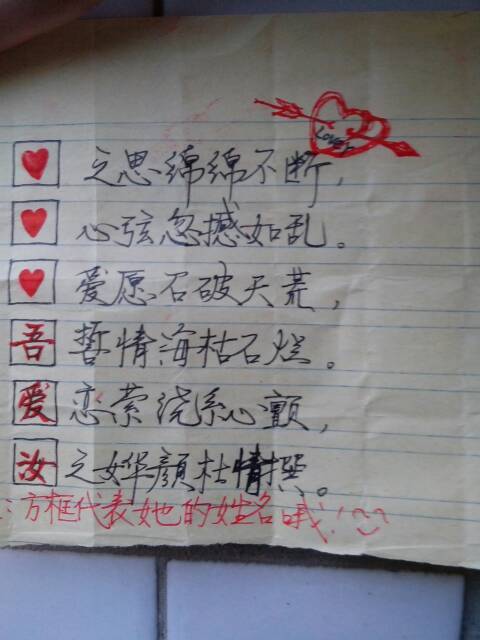 Love
之思绵绵不断，
心弦忽撼如乱。
爱愿石破天荒，
吾 哲情海枯石烂。
爱 恋萦浇系心颤，
汝 之女华颜杜情撰。
：方框代表她的姓名哦！